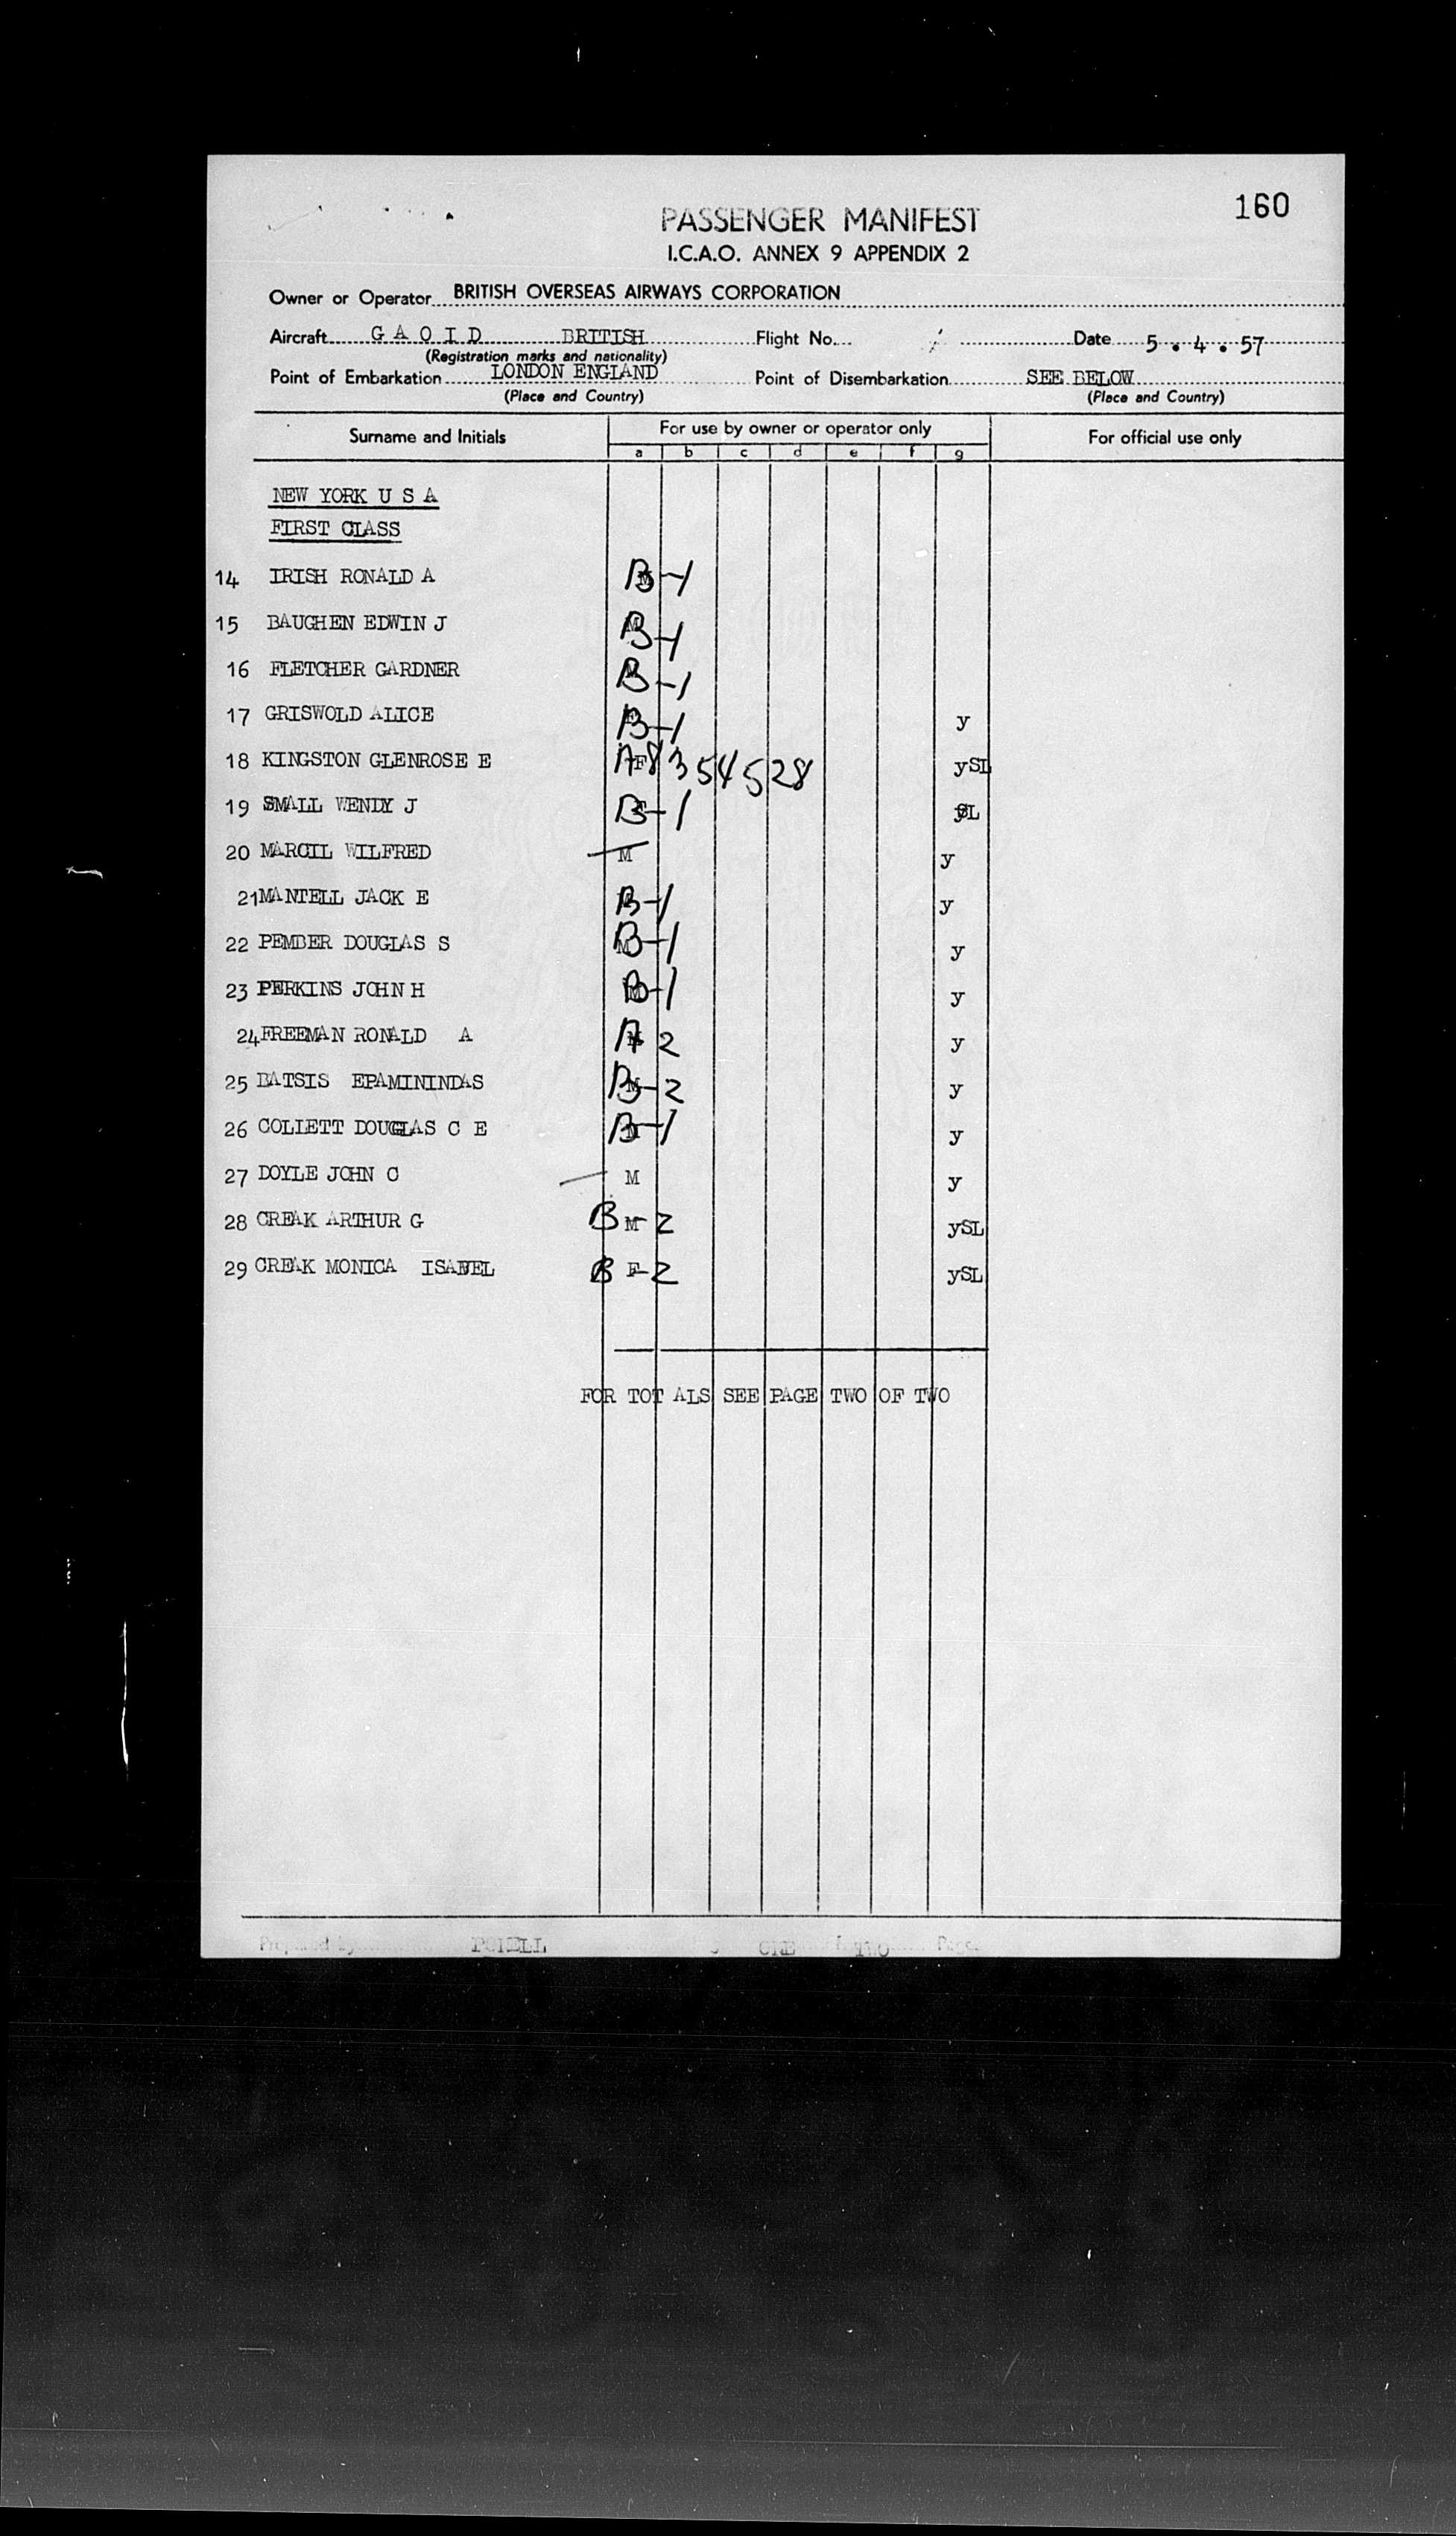 160
PASSENGER MANIFEST
I.C.A.O. ANNEX 9 APPENDIX 2
Owner or Operator BRITISH OVERSEAS AIRWAYS CORPORATION
Aircraft G A O I D BRITISH Flight No. Date 5 . 4 . 57
(Registration marks and nationality)
Point of Embarkation LONDON ENGLAND Point of Disembarkation SEE BELOW
(Place and Country) (Place and Country)
Surname and Initials For use by owner or operator only For official use only
a b c d e f g
NEW YORK U S A
FIRST CLASS
14 IRISH RONALD A M B-1
15 BAUGHEN EDWIN J M B-1
16 FLETCHER GARDNER M B-1
17 GRISWOLD ALICE F B-1 y
18 KINGSTON GLENROSE E F A8354528 ySL
19 SMALL WENDY J F B-1 ySL
20 MARCIL WILFRED M y
21 MANTELL JACK E M B-1 y
22 PEMBER DOUGLAS S M B-1 y
23 PERKINS JOHN H M B-1 y
24 FREEMAN RONALD A M A 2 y
25 BATSIS EPAMININDAS M B-2 y
26 COLLETT DOUGLAS C E M B-1 y
27 DOYLE JOHN C M y
28 CREAK ARTHUR G B M-2 ySL
29 CREAK MONICA ISABEL B F-2 ySL
FOR TOT ALS SEE PAGE TWO OF TWO
Prepared by POWELL ONE TWO Page.